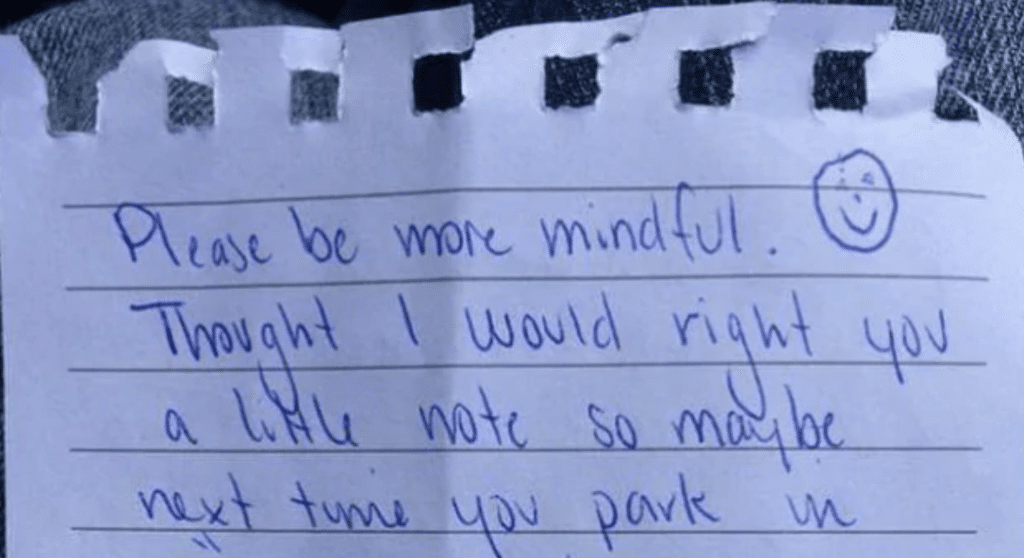 Please be more mindful.
Thought I would right you
a little note so maybe
next time you park in